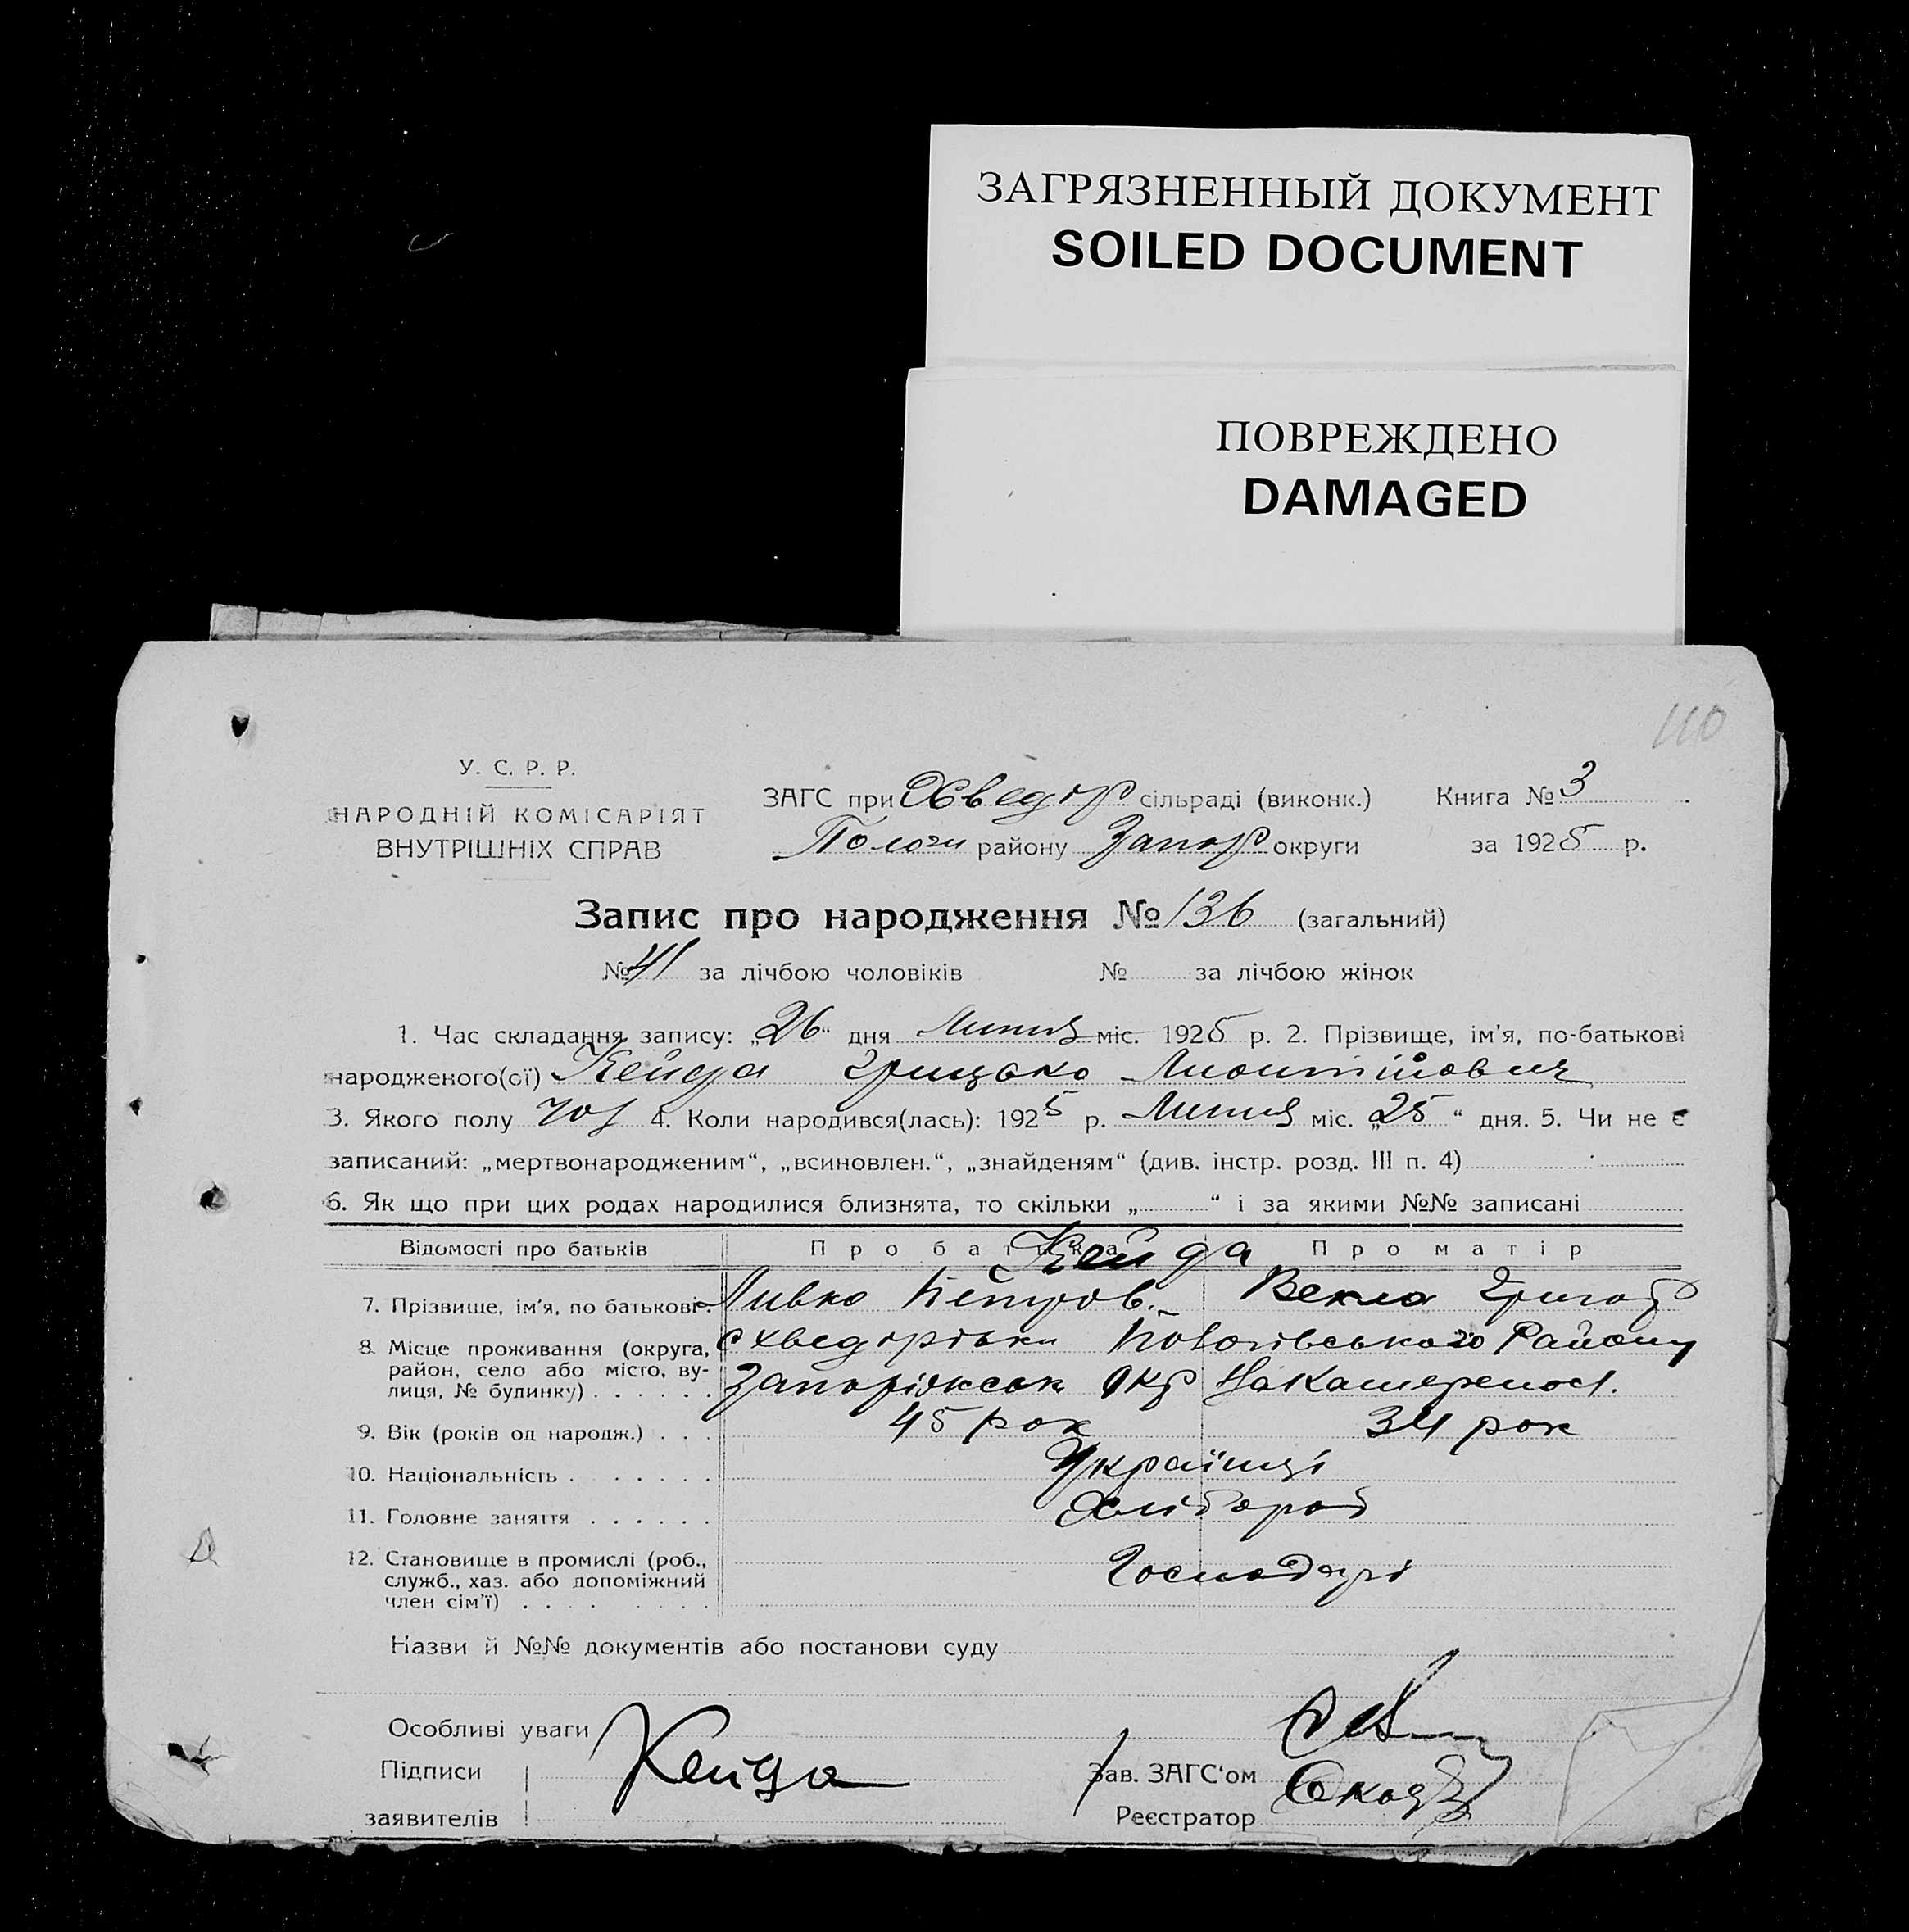 ЗАГРЯЗНЕННЫЙ ДОКУМЕНТ
SOILED DOCUMENT
ПОВРЕЖДЕНО
DAMAGED
110
У. С. Р. Р.
НАРОДНІЙ КОМІСАРІЯТ
ВНУТРІШНІХ СПРАВ
ЗАГС при Охведор сільраді (виконк.) Книга № 3
Пологи району Запор округи за 1925 р.
Запис про народження № 136 (загальний)
№ 41 за лічбою чоловіків № за лічбою жінок
1. Час складання запису: „26“ дня Липня міс. 1925 р. 2. Прізвище, ім'я, по-батькові
народженого(ої) Кейда Грицько
3. Якого полу чол 4. Коли народився(лась): 1925 р. Липня міс. „25“ дня. 5. Чи не є
записаний: „мертвонародженим“, „всиновлен.“, „знайденям“ (див. інстр. розд. III п. 4)
6. Як що при цих родах народилися близнята, то скільки „ “ і за якими №№ записані
Відомості про батьків Про батька Про матір
Кейда
7. Прізвище, ім'я, по батькові. Ливко Петров. Векла Григор
8. Місце проживання (округа, район, село або місто, вулиця, № будинку) . . . . . . Охведорівка Пологівського Району
Запоріжськ Окр на Катереносл.
9. Вік (років од народж.) . . . 45 рок 34 рок
10. Національність . . . . . . . Українці
11. Головне заняття . . . . . . Хлібороб
12. Становище в промислі (роб., служб., хаз. або допоміжний член сім'ї) . . . . . . . . Господарі
Назви й №№ документів або постанови суду
Особливі уваги
Підписи
заявителів
Кейда
Зав. ЗАГС'ом
Реєстратор